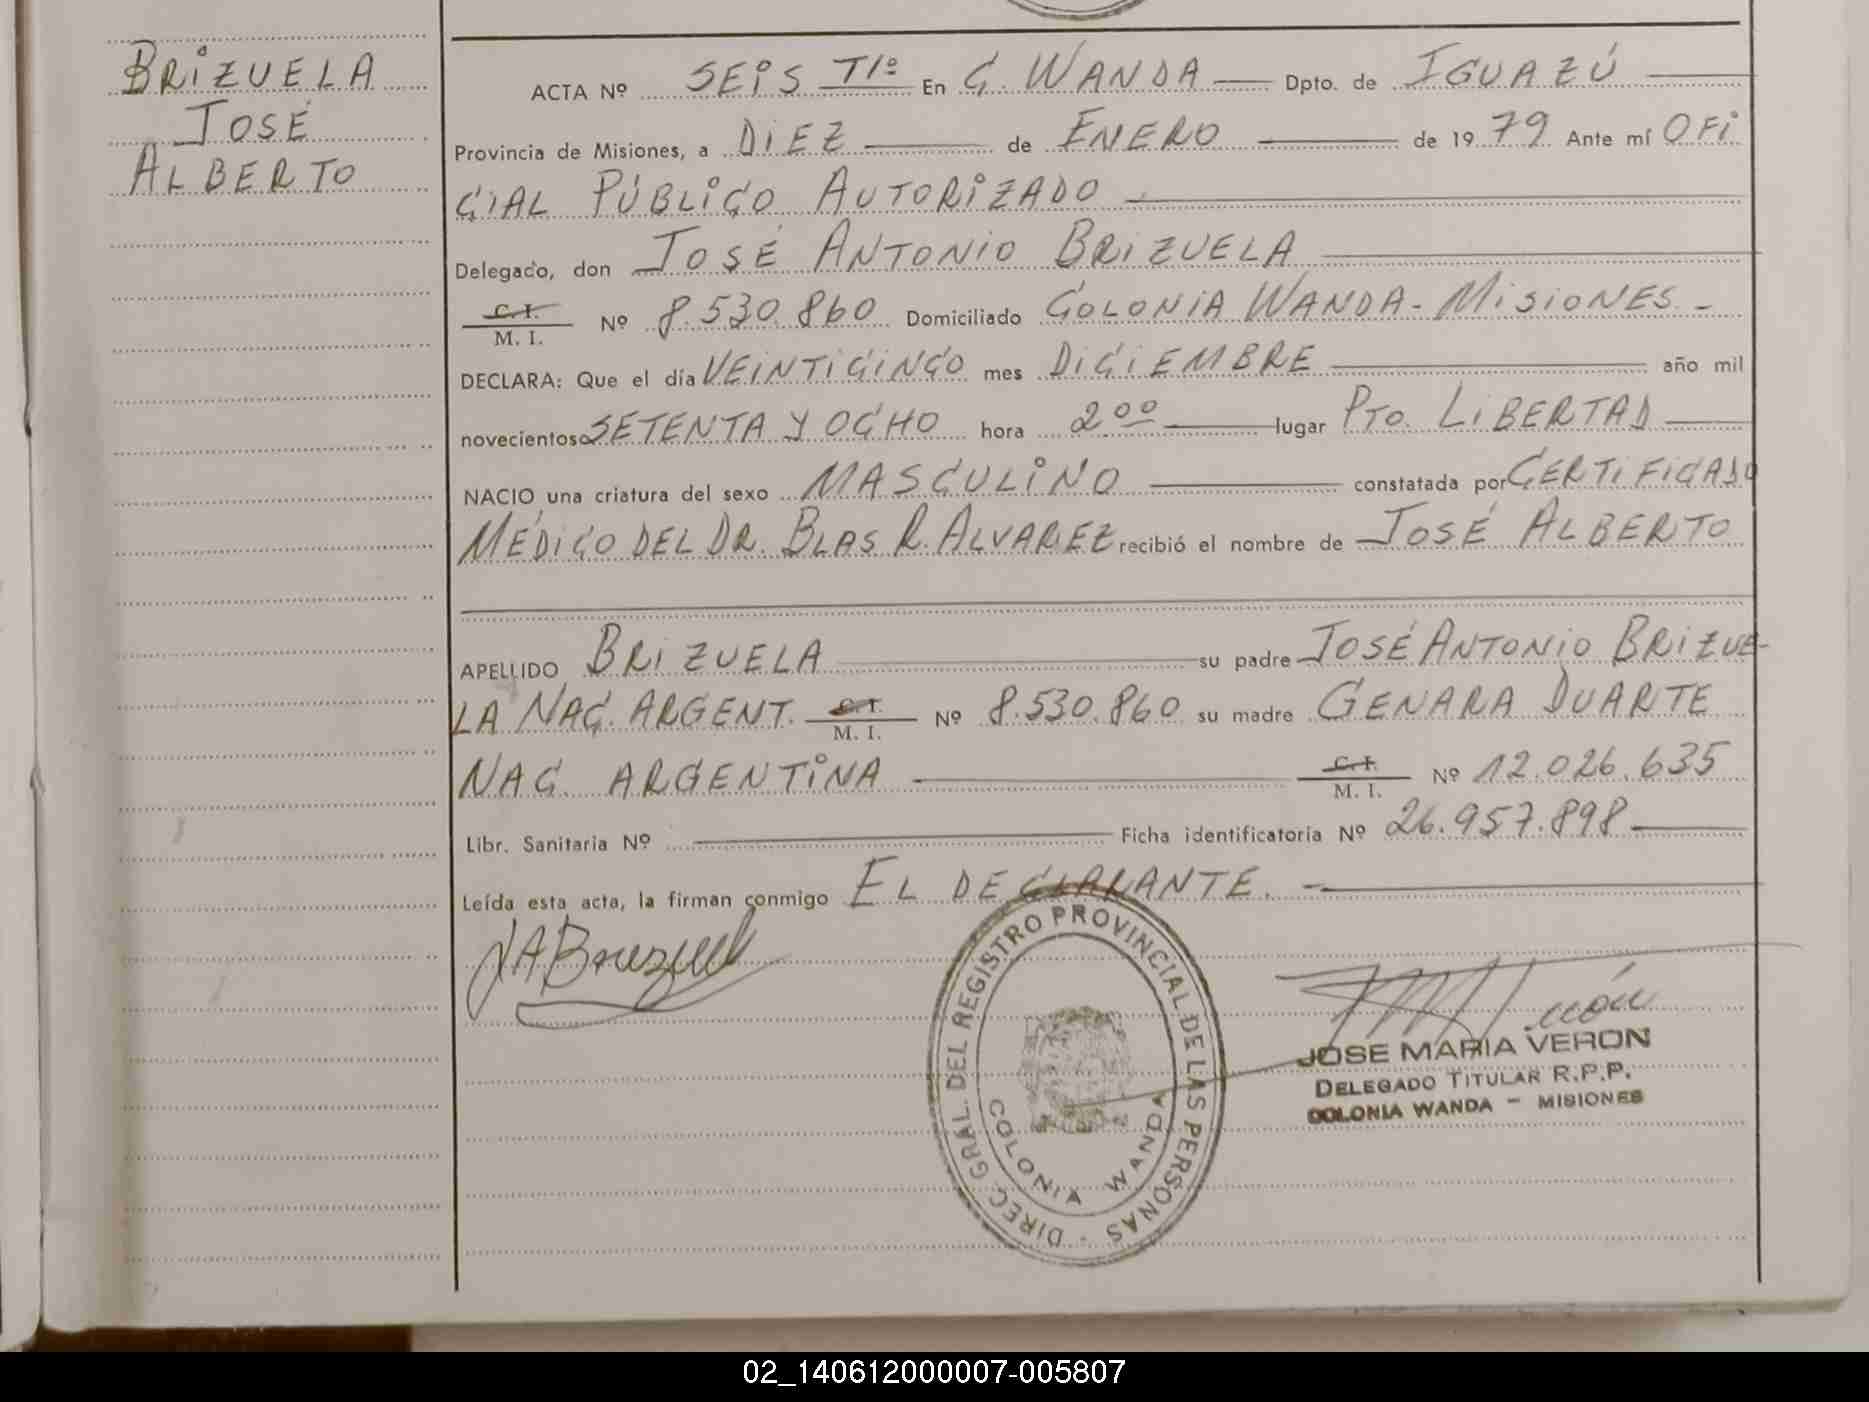 BRIZUELA
JOSÉ
ALBERTO
ACTA Nº SEIS Tlº En C. WANDA Dpto. de IGUAZÚ
Provincia de Misiones, a DIEZ de ENERO de 1979 Ante mí OFI
CIAL PÚBLICO AUTORIZADO
Delegado, don JOSÉ ANTONIO BRIZUELA
C. I.
M. I. Nº 8.530.860 Domiciliado COLONIA WANDA - MISIONES -
DECLARA: Que el día VEINTICINCO mes DICIEMBRE año mil
novecientos SETENTA Y OCHO hora 2 00 lugar PTO. LIBERTAD
NACIO una criatura del sexo MASCULINO constatada por CERTIFICADO
MÉDICO DEL DR. BLAS R. ALVAREZ recibió el nombre de JOSÉ ALBERTO
APELLIDO BRIZUELA su padre JOSÉ ANTONIO BRIZUE-
LA NAC. ARGENT. C. I. M. I. Nº 8.530.860 su madre GENARA DUARTE
NAC. ARGENTINA C. I. M. I. Nº 12.026.635
Libr. Sanitaria Nº Ficha identificatoria Nº 26.957.898
Leída esta acta, la firman conmigo EL DECLARANTE. -
DIREC. GRAL. DEL REGISTRO PROVINCIAL DE LAS PERSONAS
COLONIA WANDA
JOSE MARIA VERON
DELEGADO TITULAR R.P.P.
COLONIA WANDA - MISIONES
02_140612000007-005807